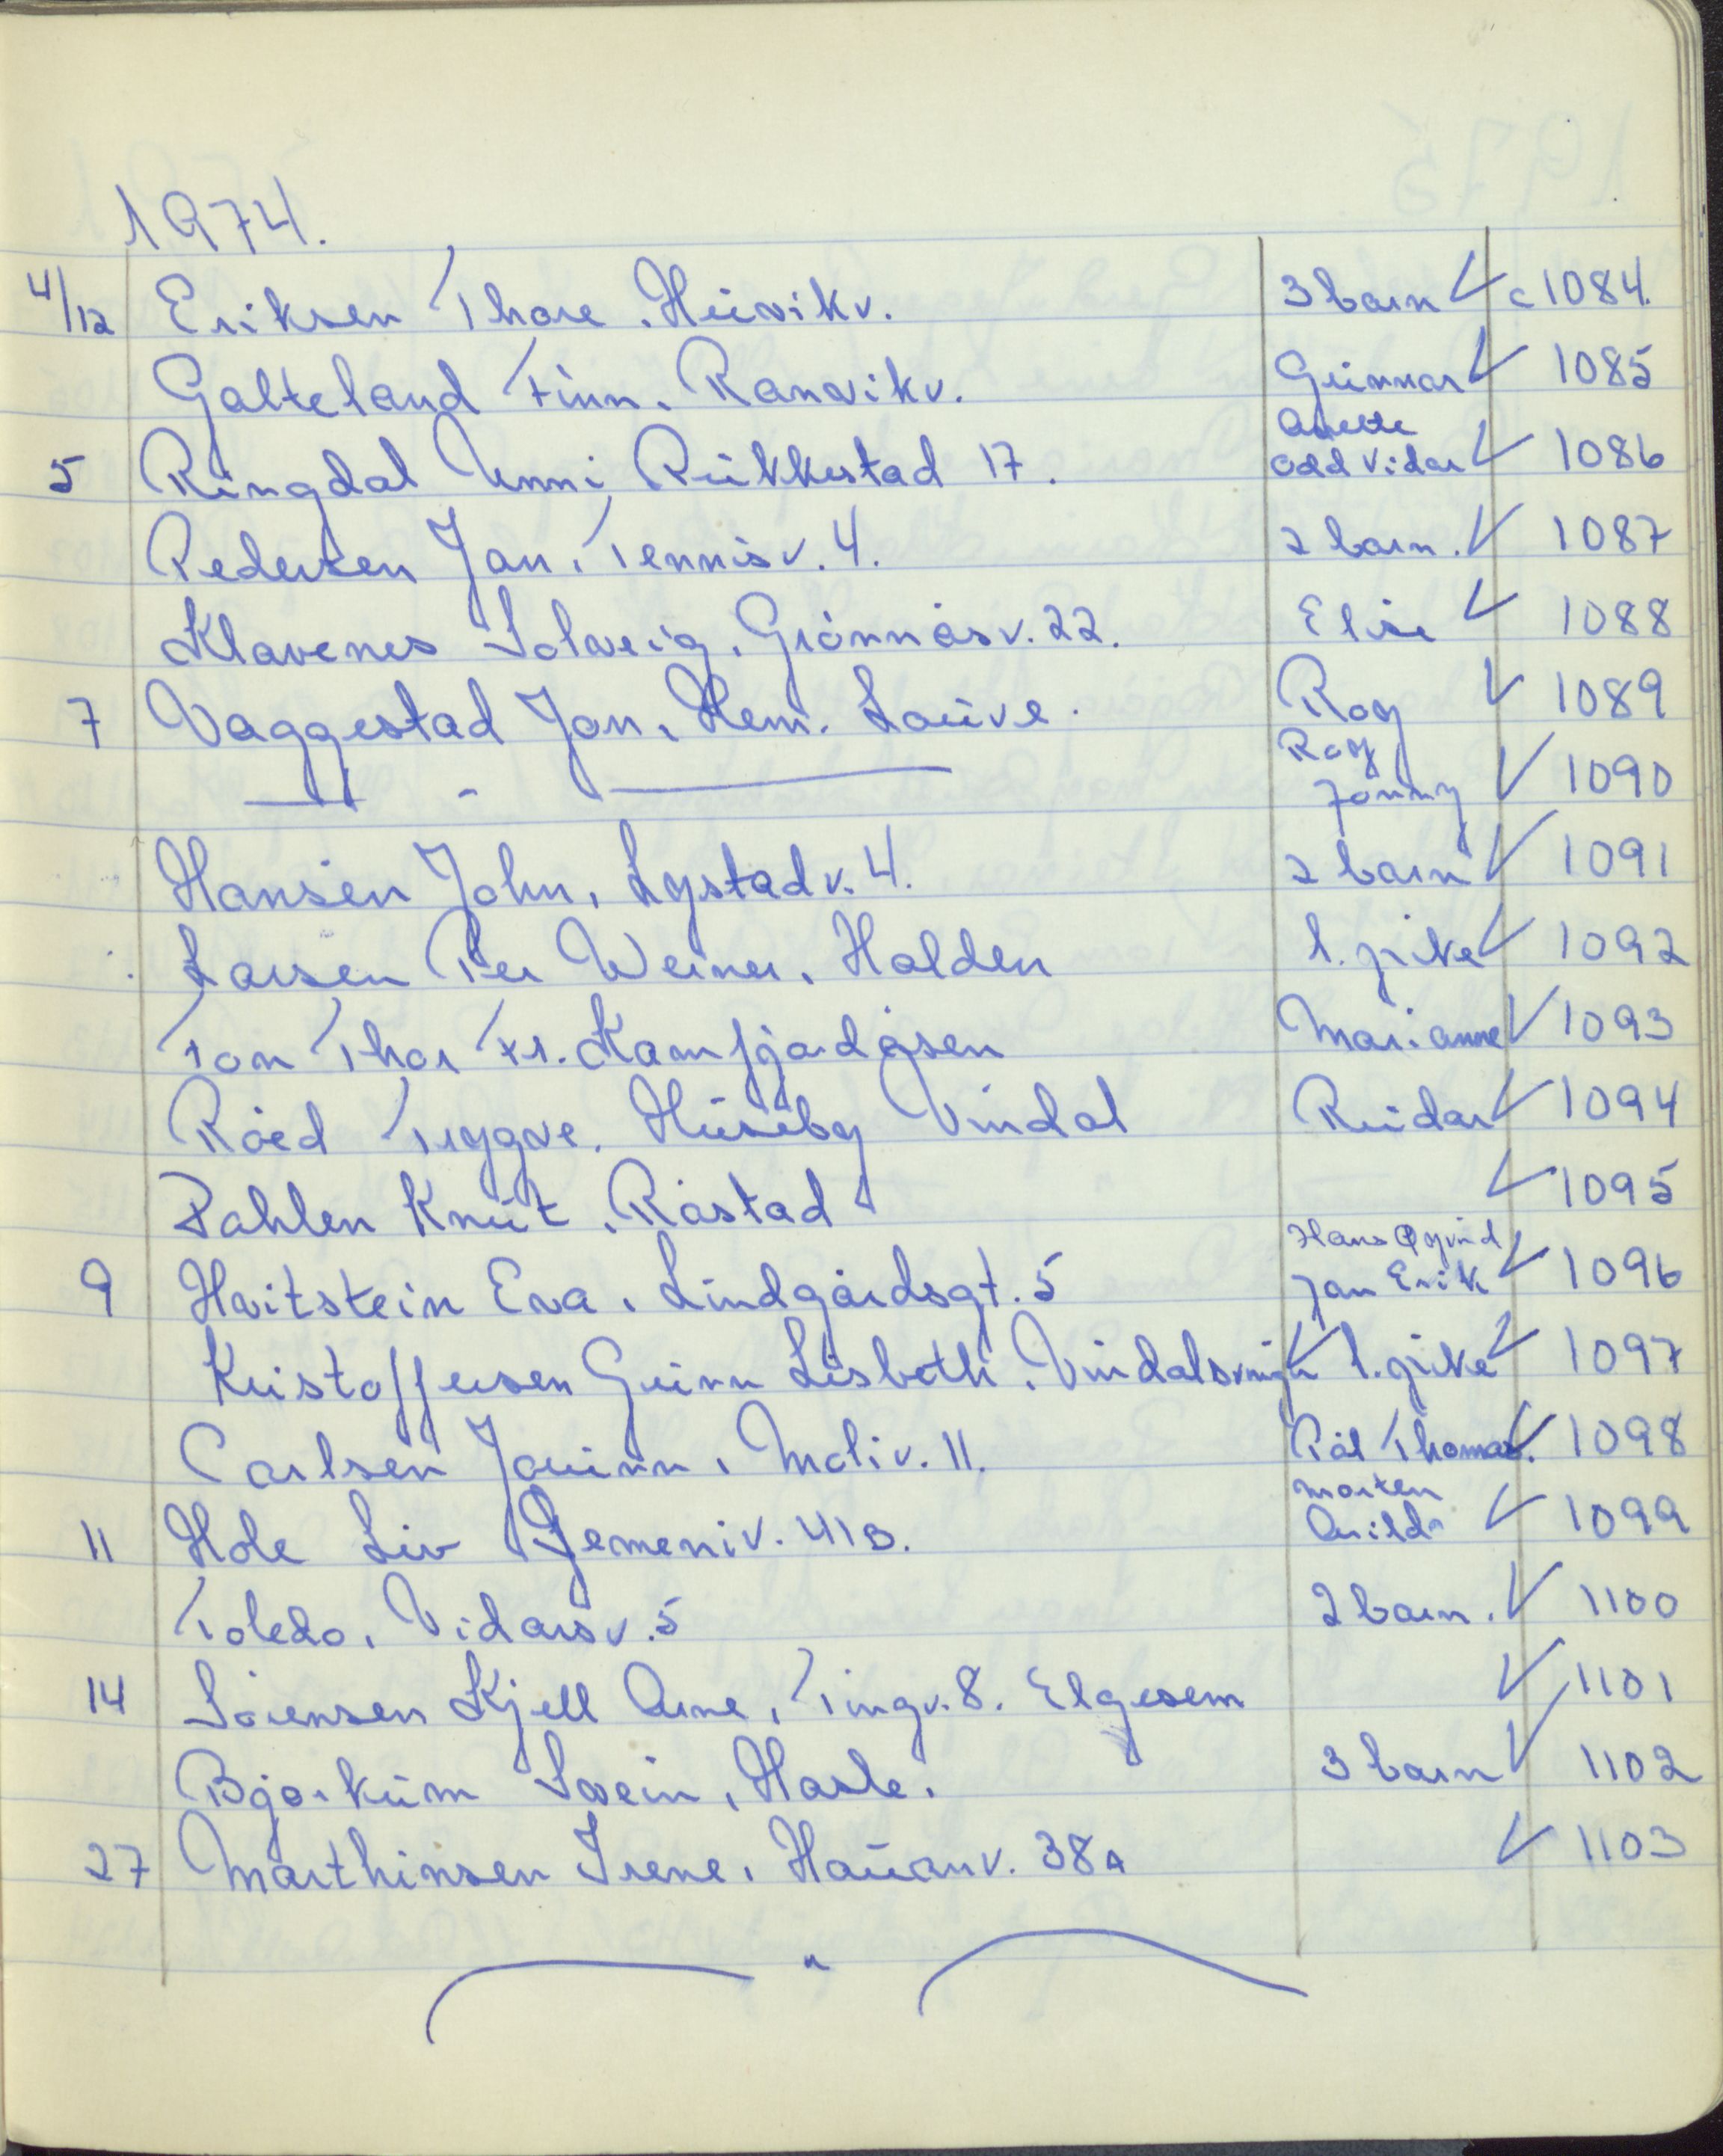 1974.
4/12 Eriksen Thore. Heivikv. 3 barn ✓ c 1084.
Galteland Finn. Ranvikv. Gunnar ✓ 1085
Anette
5 Ringdal Unni, Rukkestad 17. Odd Vidar ✓ 1086
Pedersen Jan, Tennisv. 4. 2 barn. ✓ 1087
Klavenes Solveig, Grönnåsv. 22. Elise ✓ 1088
7 Vaggestad Jon, Hem. Lauve. Roy ✓ 1089
Roy
— " — Jonny ✓ 1090
Hansen John, Lystadv. 4. 2 barn ✓ 1091
Larsen Per Werner, Halden 1. pike ✓ 1092
Tom Thor Fr. Kamfjordgsen Marianne ✓ 1093
Röed Tryggve, Huseby Vindal Reidar ✓ 1094
Pahlen Knut, Råstad ✓ 1095
Hans Øyvind
9 Hvitstein Eva, Lindgårdsgt. 5 Jan Erik ✓ 1096
Kristoffersen Gunn Lisbeth, 1. pike ✓ 1097
Carlsen Jouinn, Moliv. 11. Pål Thomas. ✓ 1098
Morten
11 Hole Liv Gemeniv. 41B. Arild ✓ 1099
Toledo, Vidarsv. 5 2 barn. ✓ 1100
14 Sörensen Kjell Arne, Tingv. 8. Elgesem ✓ 1101
Bjorkum Svein, Hasle. 3 barn ✓ 1102
27 Marthinsen Irene, Hauanv. 38A ✓ 1103
— " —